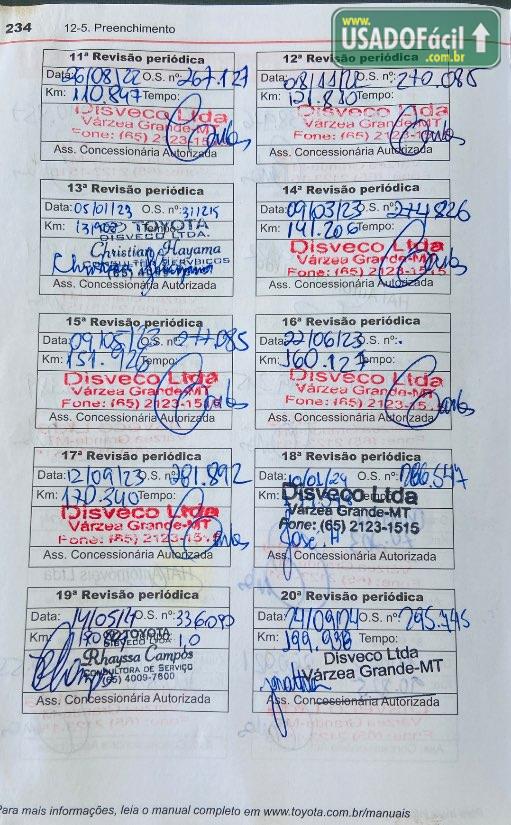 234
12-5. Preenchimento
www.
USADOFácil
.com.br
11ª Revisão periódica
Data: 26/08/22 O.S. nº: 267.127
Km: 110.847 Tempo:
Disveco Ltda
Várzea Grande-MT
Fone: (65) 2123-15
Ass. Concessionária Autorizada
12ª Revisão periódica
Data: 08/11/22 O.S. nº: 270.085
Km: 121.810 Tempo:
Disveco Ltda
Várzea Grande-MT
Fone: (65) 2123-15
Ass. Concessionária Autorizada
13ª Revisão periódica
Data: 05/01/23 O.S. nº: 311215
Km: Tempo:
TOYOTA
DISVECO LTDA.
Christian Hayama
Ass. Concessionária Autorizada
14ª Revisão periódica
Data: 09/03/23 O.S. nº: 274826
Km: 141.206 Tempo:
Disveco Ltda
Várzea Grande-MT
Fone: (65) 2123-1515
Ass. Concessionária Autorizada
15ª Revisão periódica
Data: 09/05/23 O.S. nº: 277.085
Km: 151.926 Tempo:
Disveco Ltda
Várzea Grande-MT
Fone: (65) 2123-1515
Ass. Concessionária Autorizada
16ª Revisão periódica
Data: 22/06/23 O.S. nº:
Km: 160.127 Tempo:
Disveco Ltda
Várzea Grande-MT
Fone: (65) 2123-15
Ass. Concessionária Autorizada
17ª Revisão periódica
Data: 12/09/23 O.S. nº: 281.892
Km: 170.340 Tempo:
Disveco Ltda
Várzea Grande-MT
Fone: (65) 2123-151
Ass. Concessionária Autorizada
18ª Revisão periódica
Data: 10/01/24 O.S. nº: 286.547
Km:
Disveco Ltda
Várzea Grande-MT
Fone: (65) 2123-1515
Ass. Concessionária Autorizada
19ª Revisão periódica
Data: 14/05/14 O.S. nº: 336090
Km:
TOYOTA
DISVECO LTDA.
Rhayssa Campos
CONSULTORA DE SERVIÇO
(65) 4009-7600
Ass. Concessionária Autorizada
20ª Revisão periódica
Data: 24/09/24 O.S. nº: 295.445
Km: 199.938 Tempo:
Disveco Ltda
Várzea Grande-MT
Ass. Concessionária Autorizada
Para mais informações, leia o manual completo em www.toyota.com.br/manuais